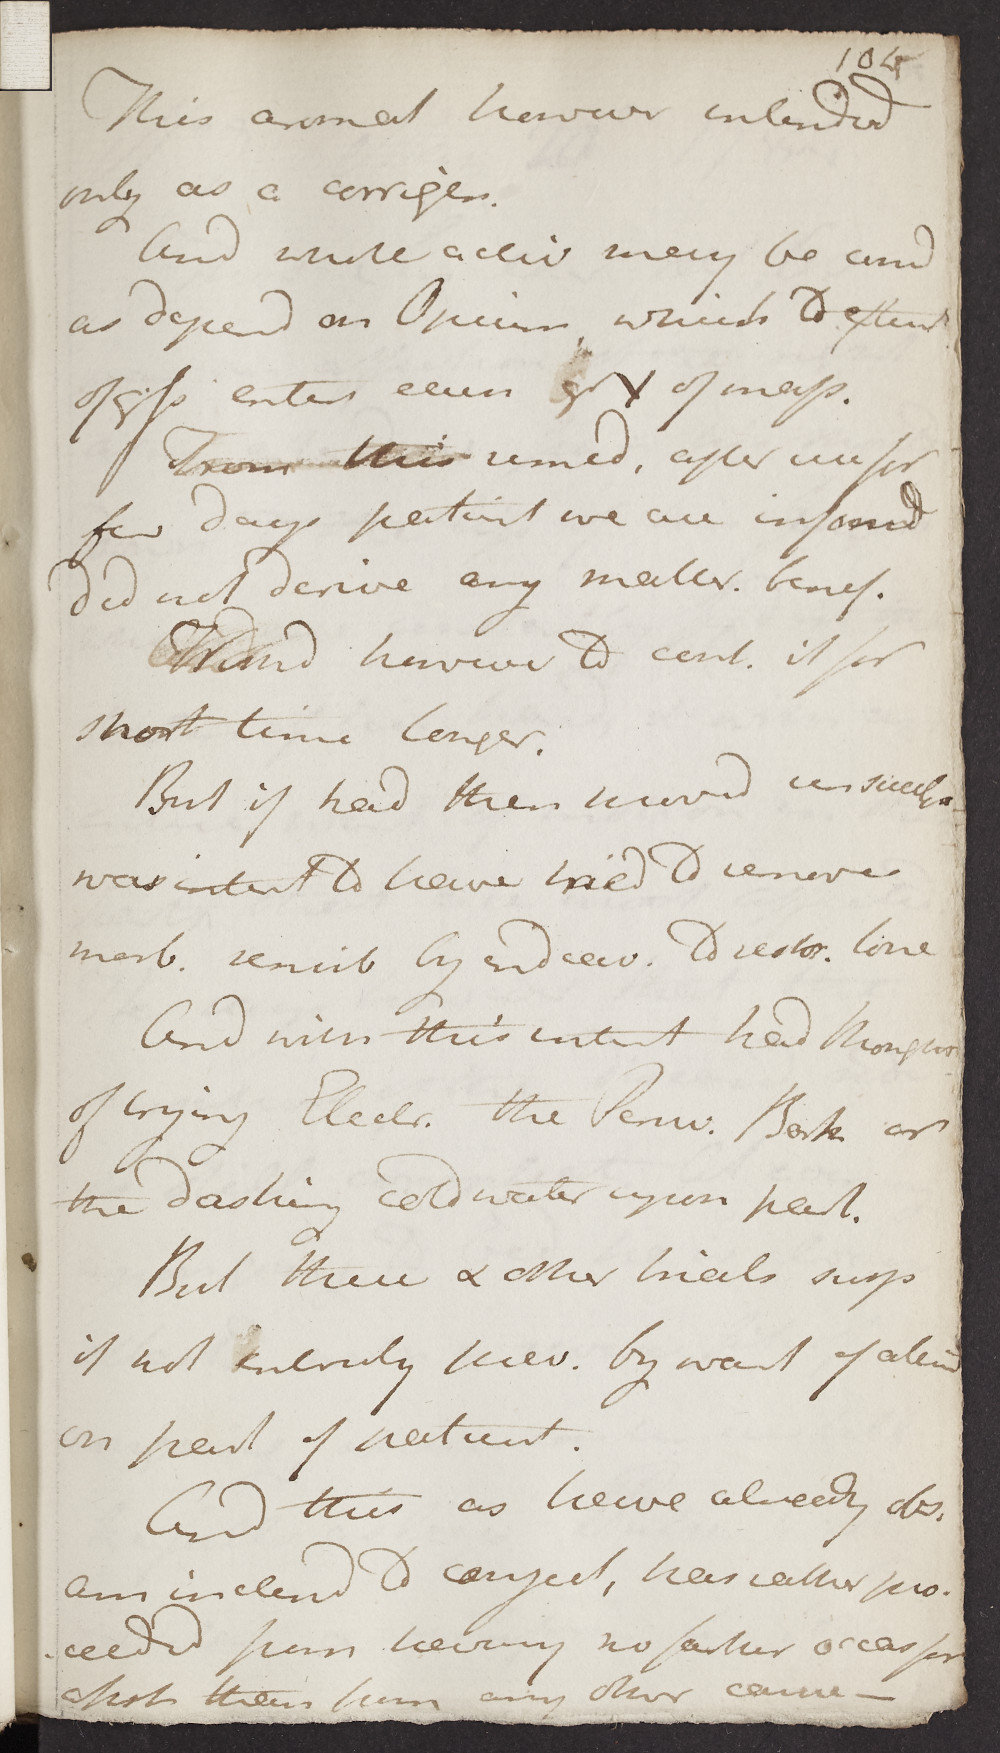 104
This aromat however intended
only as a corrigen.
And whole activ may be cond
as depend on Opium, which to extent
of gr fs enters each gr V of mass.
From this remed. after use for
few days patient we are informd
did not derive any matter. benef.
Thémd however to cont. it for
short time longer.
But if had then provd unsuccessf
was intent to have tried to remove
morb. sensib by endeav. to restor. tone
And with this intent had thoughts
of trying Electr. the Peruv. Bark or
the dashing cold water upon part.
But these & other trials
if not entirely prev. by want of attend
on part of patient.
And this as have already obs.
am inclend to conject, has rather pro-
ceeded from having no farther occas for
assist than from any other cause—